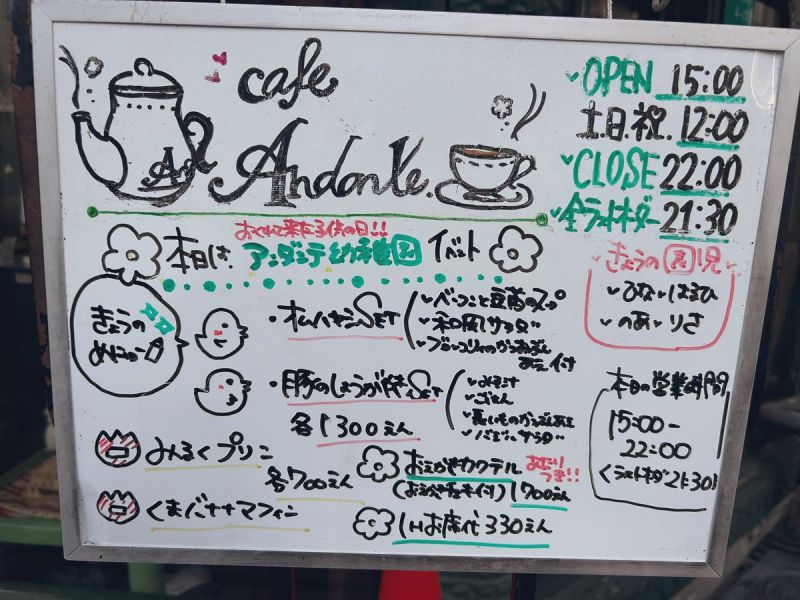 cafe
Andante.
OPEN 15:00
土.日.祝. 12:00
CLOSE 22:00
全ラストオーダー 21:30
おくれて来た子供の日!!
本日は、アンダンテ幼稚園 イベント
きょうの園児
ひな はるひ
のあ りさ
きょうの
めにゅー
・オムハヤシSET
ベーコンと豆苗のスープ
和風サラダ
ブロッコリーのかつおぶし
あえ付
・豚のしょうが焼SET
みそ汁
ごはん
長いものかつぶしあえ
各1300えん
本日の営業時間
15:00-
22:00
くラストオーダ21:30〉
みんるくプリン
各700えん
くまバナナマフィン
おえかきカクテル おさわりつき!!
(おえかきチェキ付) 1700えん
1Hお席代330えん